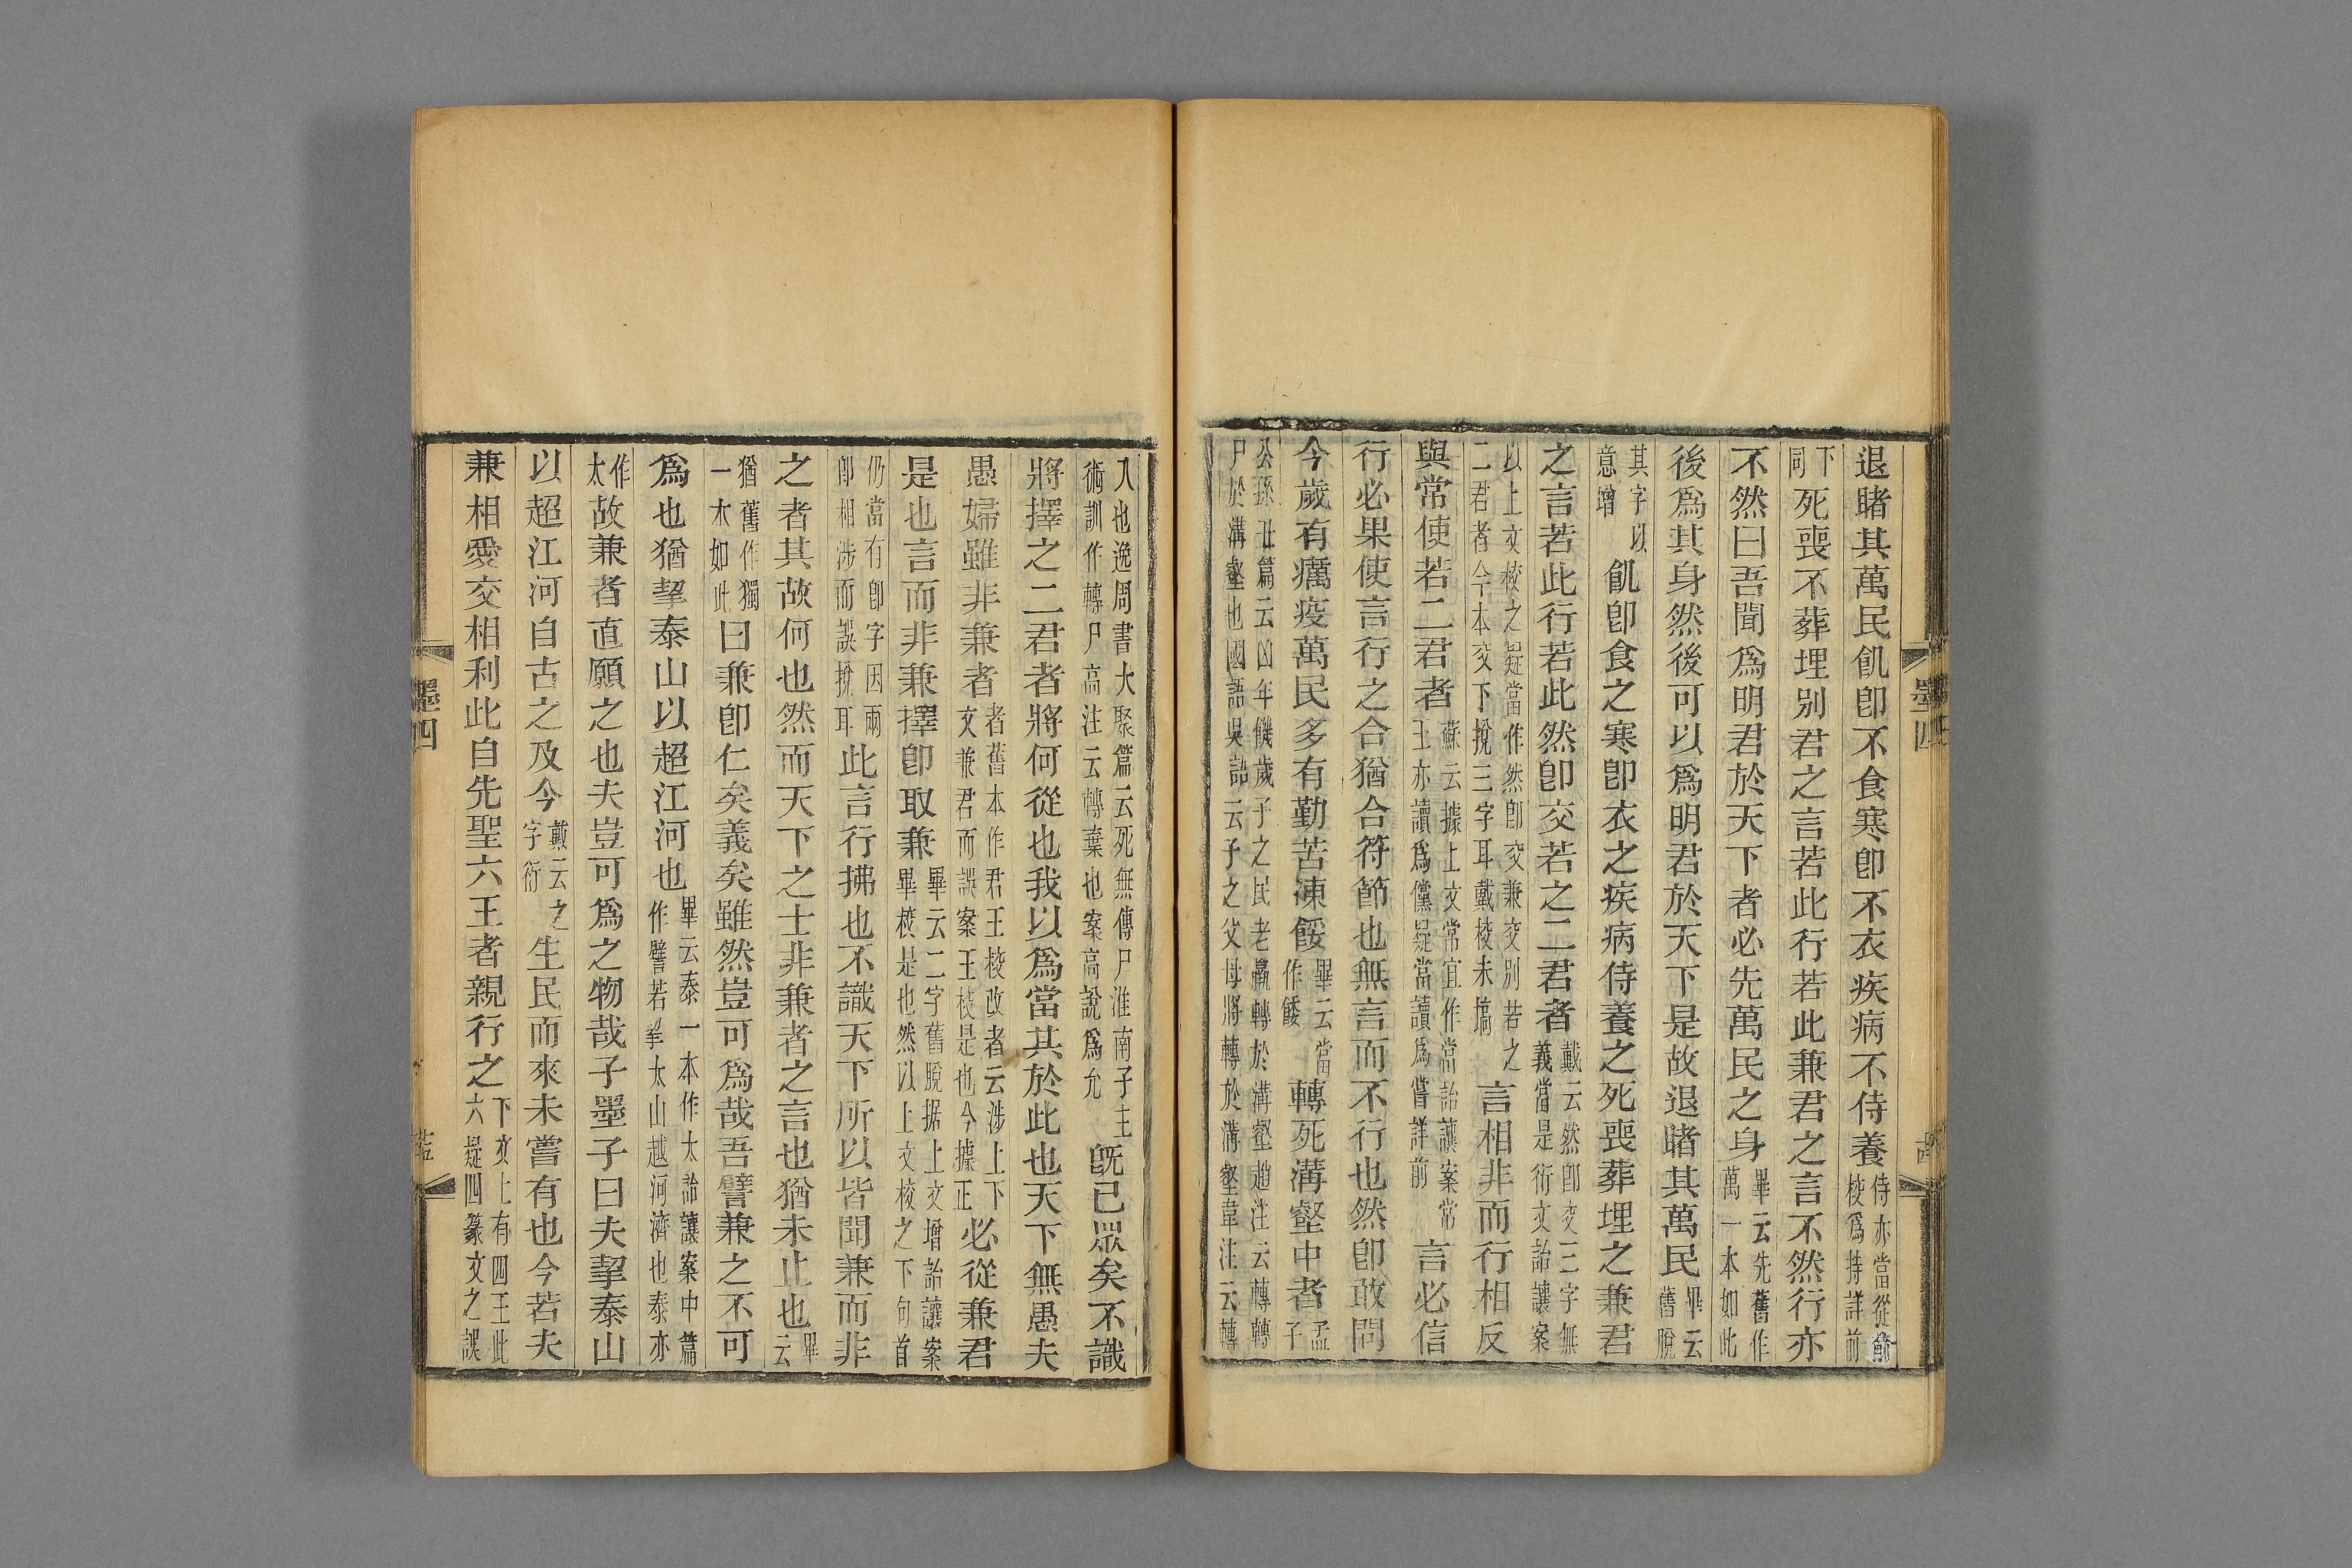 退睹其萬民飢卽不食寒卽不衣疾病不侍養侍亦當從俞校爲持詳前
下同死喪不葬埋別君之言若此行若此兼君之言不然行亦
不然曰吾聞爲明君於天下者必先萬民之身畢云先舊作萬一本如此
後爲其身然後可以爲明君於天下是故退睹其萬民畢云舊脫
其字以意增飢卽食之寒卽衣之疾病侍養之死喪葬埋之兼君
之言若此行若此然卽交若之二君者戴云然卽交三字無義當是衍文詒讓案
以上文校之疑當作然卽交兼交別若之二君者今本交下挩三字耳戴校未塙言相非而行相反
與常使若二君者蘇云據上文常宜作當詒讓案常王亦讀爲儻疑當讀爲嘗詳前言必信
行必果使言行之合猶合符節也無言而不行也然卽敢問
今歲有癘疫萬民多有勤苦凍餒畢云當作餧轉死溝壑中者孟子
公孫丑篇云凶年饑歲子之民老羸轉於溝壑趙注云轉轉尸於溝壑也國語吳語云子之父母將轉於溝壑韋注云轉
入也逸周書大聚篇云死無傳尸淮南子主術訓作轉尸高注云轉棄也案高說爲允旣已眾矣不識
將擇之二君者將何從也我以爲當其於此也天下無愚夫
愚婦雖非兼者者舊本作君王校改者云涉上下文兼君而誤案王校是也今據正必從兼君
是也言而非兼擇卽取兼畢云二字舊脫据上文增詒讓案畢校是也然以上文校之下句首
仍當有卽字因兩卽相涉而誤挩耳此言行拂也不識天下所以皆聞兼而非
之者其故何也然而天下之士非兼者之言也猶未止也畢云
猶舊作獨一本如此曰兼卽仁矣義矣雖然豈可爲哉吾譬兼之不可
爲也猶挈泰山以超江河也畢云泰一本作太詒讓案中篇作譬若挈太山越河濟也泰亦
作太故兼者直願之也夫豈可爲之物哉子墨子曰夫挈泰山
以超江河自古之及今戴云之字衍生民而來未嘗有也今若夫
兼相愛交相利此自先聖六王者親行之下文上有四王此六疑四篆文之誤
墨四